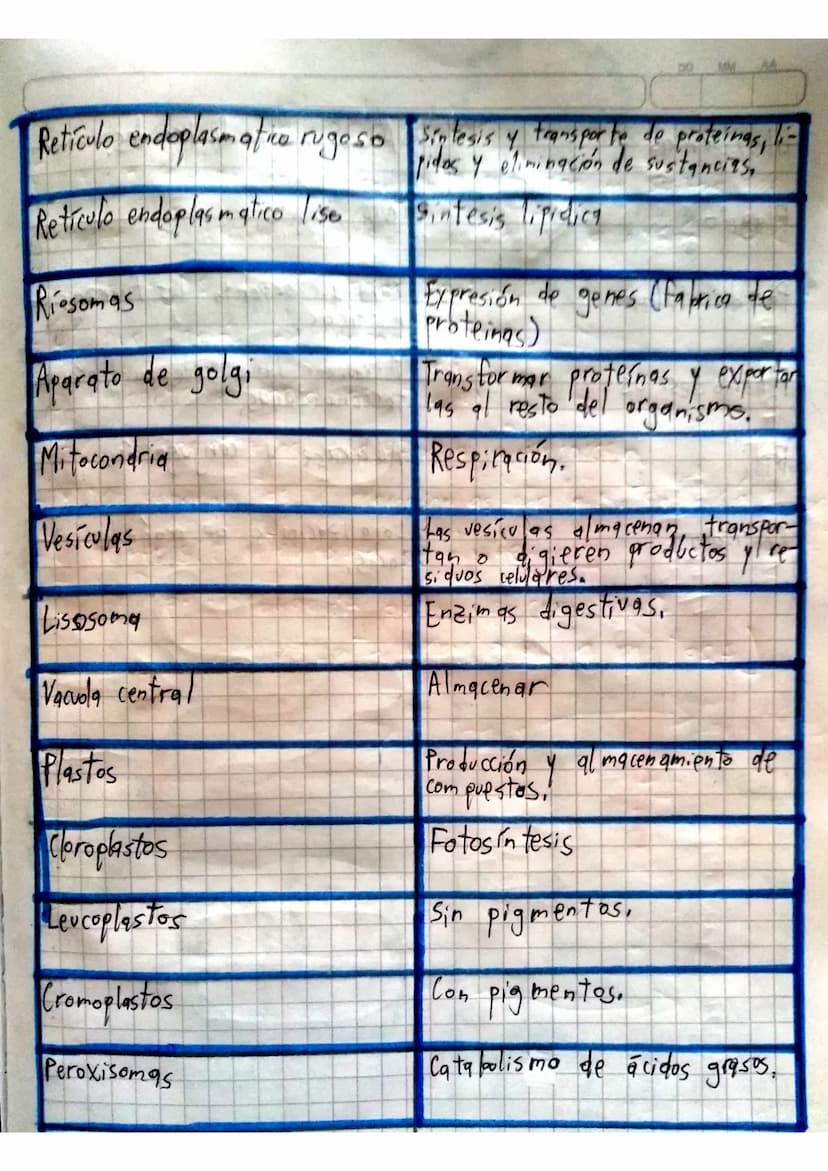 DD MM AA
Retículo endoplasmatico rugoso
Síntesis y transporte de proteínas, li-
pidos y eliminación de sustancias.
Retículo endoplasmatico liso
Síntesis lipídica
Ríosomas
Expresión de genes (fabrica de
proteinas)
Aparato de golgi
Transformar proteínas y exportar
las al resto del organismo.
Mitocondria
Respiración.
Vesículas
Las vesículas almacenan, transpor-
tan o digieren productos y re-
siduos celulares.
Lisosoma
Enzimas digestivas.
Vacuola central
Almacenar
Plastos
Producción y almacenamiento de
compuestos.
Cloroplastos
Fotosíntesis
Leucoplastos
Sin pigmentos.
Cromoplastos
Con pigmentos.
Peroxisomas
Catabolismo de ácidos grasos.